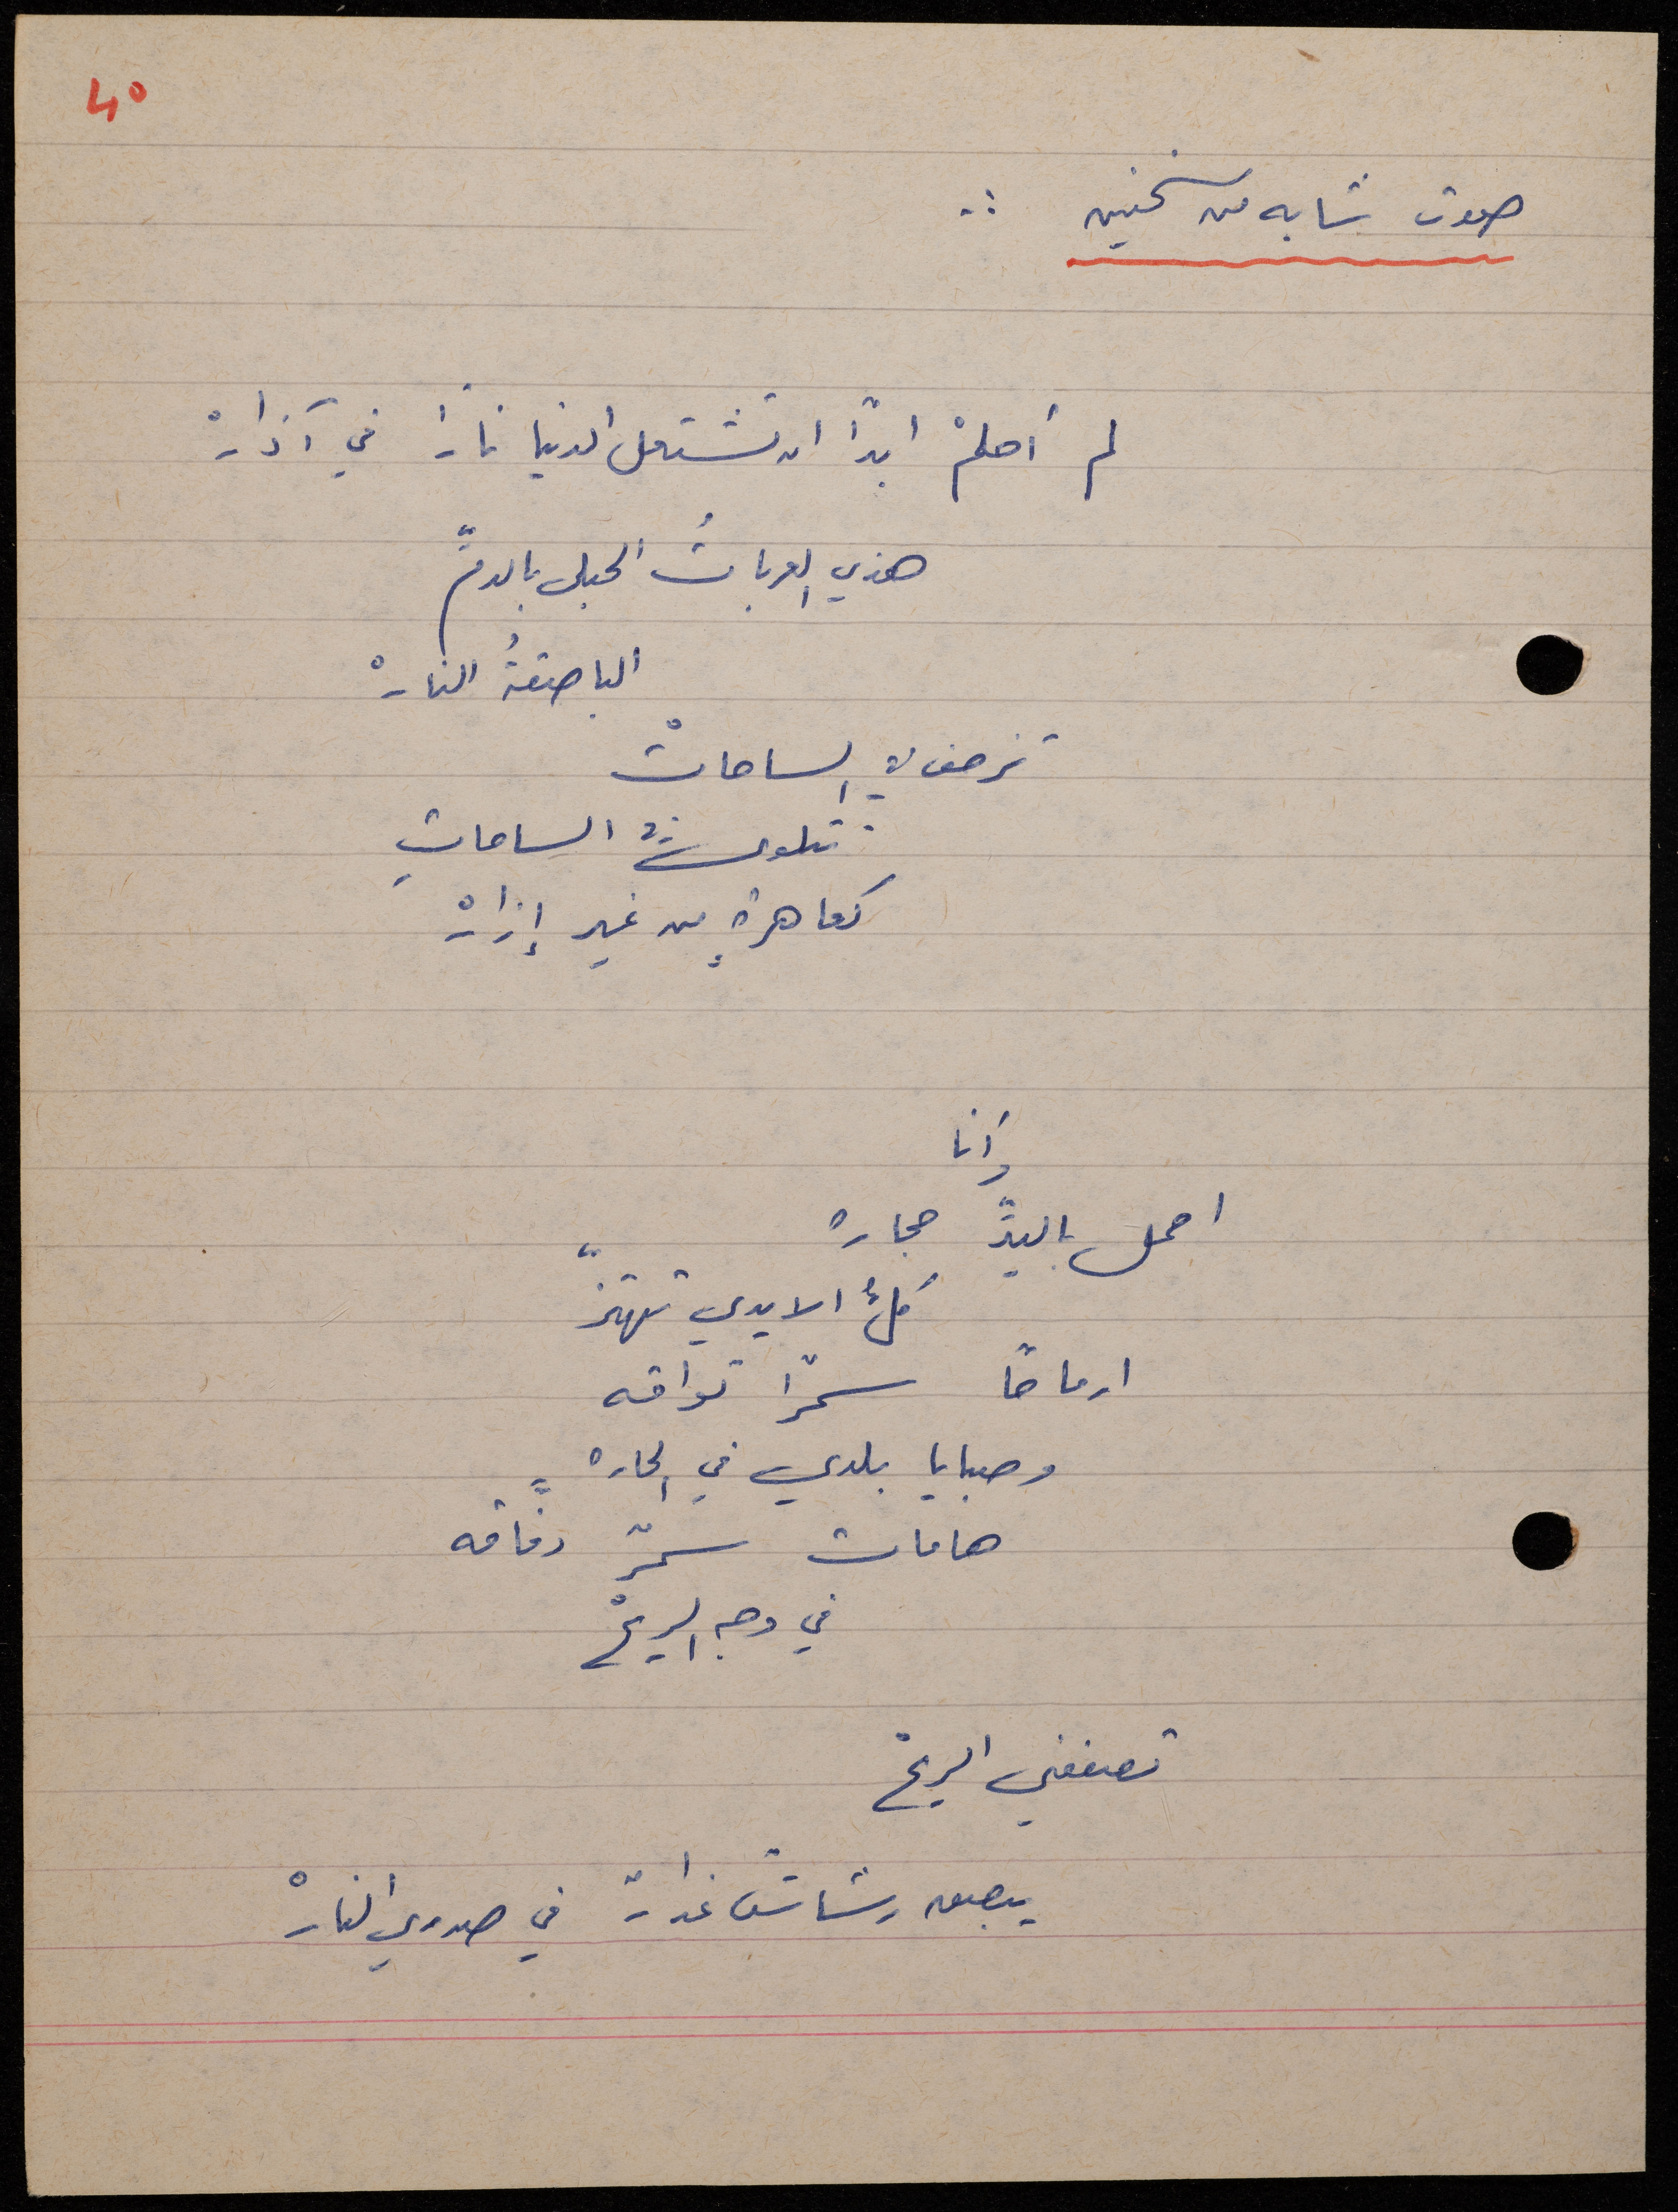 40
صوت شابه من سخنين :.
لم أحلمْ ابدًا ان تشتعل الدنيا نارًا في آذارْ
هذي العرباتُ الحبلى بالدمِّ
الباصقةُ النارْ
تزحف في الساحاتْ
تتلوى في الساحاتِ
كعاهرةٍ من غير إزارْ
وأنا
احمل باليدِّ حجاره
كلُّ الايدي تهتزّ
ارماحًا سمرًا تواقه
وصبايا بلدي في الحاره
هامات سمرٌ دفّاقه
في وجه الريحْ
تصفعني الريحْ
يبصق رشاش غدار في صدري النارْ